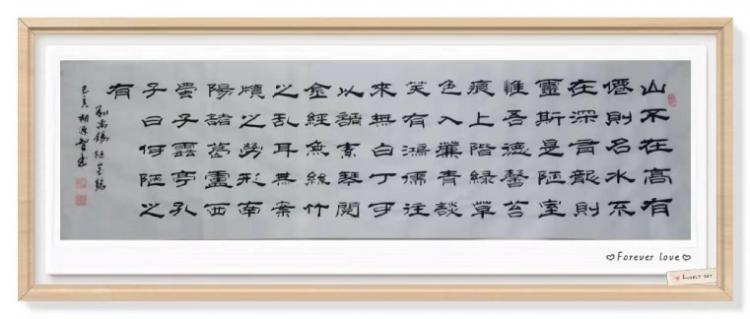 山不在高有
僊則名水不
在深有龍則
靈斯是陋室
惟吾德馨苔
痕上階綠草
色入簾青談
笑有鴻儒往
來無白丁可
以調素琴閱
金經無絲竹
之亂耳無案
牘之勞形南
陽諸葛廬西
蜀子雲亭孔
子曰何陋之
有
劉禹錫陋室銘
己亥
Forever love
LOVELY DAY